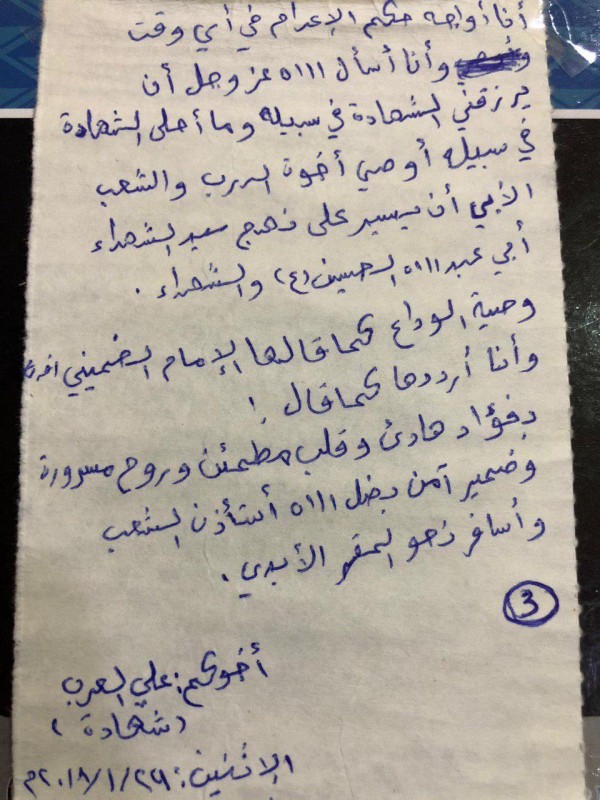 أنا أواجه حكم الإعدام في أي وقت
وأنا أسأل الله عز وجل أن
يرزقني الشهادة في سبيله وما أحلى الشهادة
في سبيله أوصي أخوة الدرب والشعب
الأبي أن يسير على نهج سيد الشهداء
أبي عبد الله الحسين (ع) والشهداء .
وصية الوداع كما قالها الإمام الخميني
وأنا أرددها كما قال !
بفؤاد هادئ وقلب مطمئن وروح مسرورة
وضمير آمن بفضل الله أستأذن الشعب
وأسافر نحو المقر الأبدي .
3
أخوكم : علي العرب
( شهادة )
الإثنين : ٢٠١٨/١/٢٩م